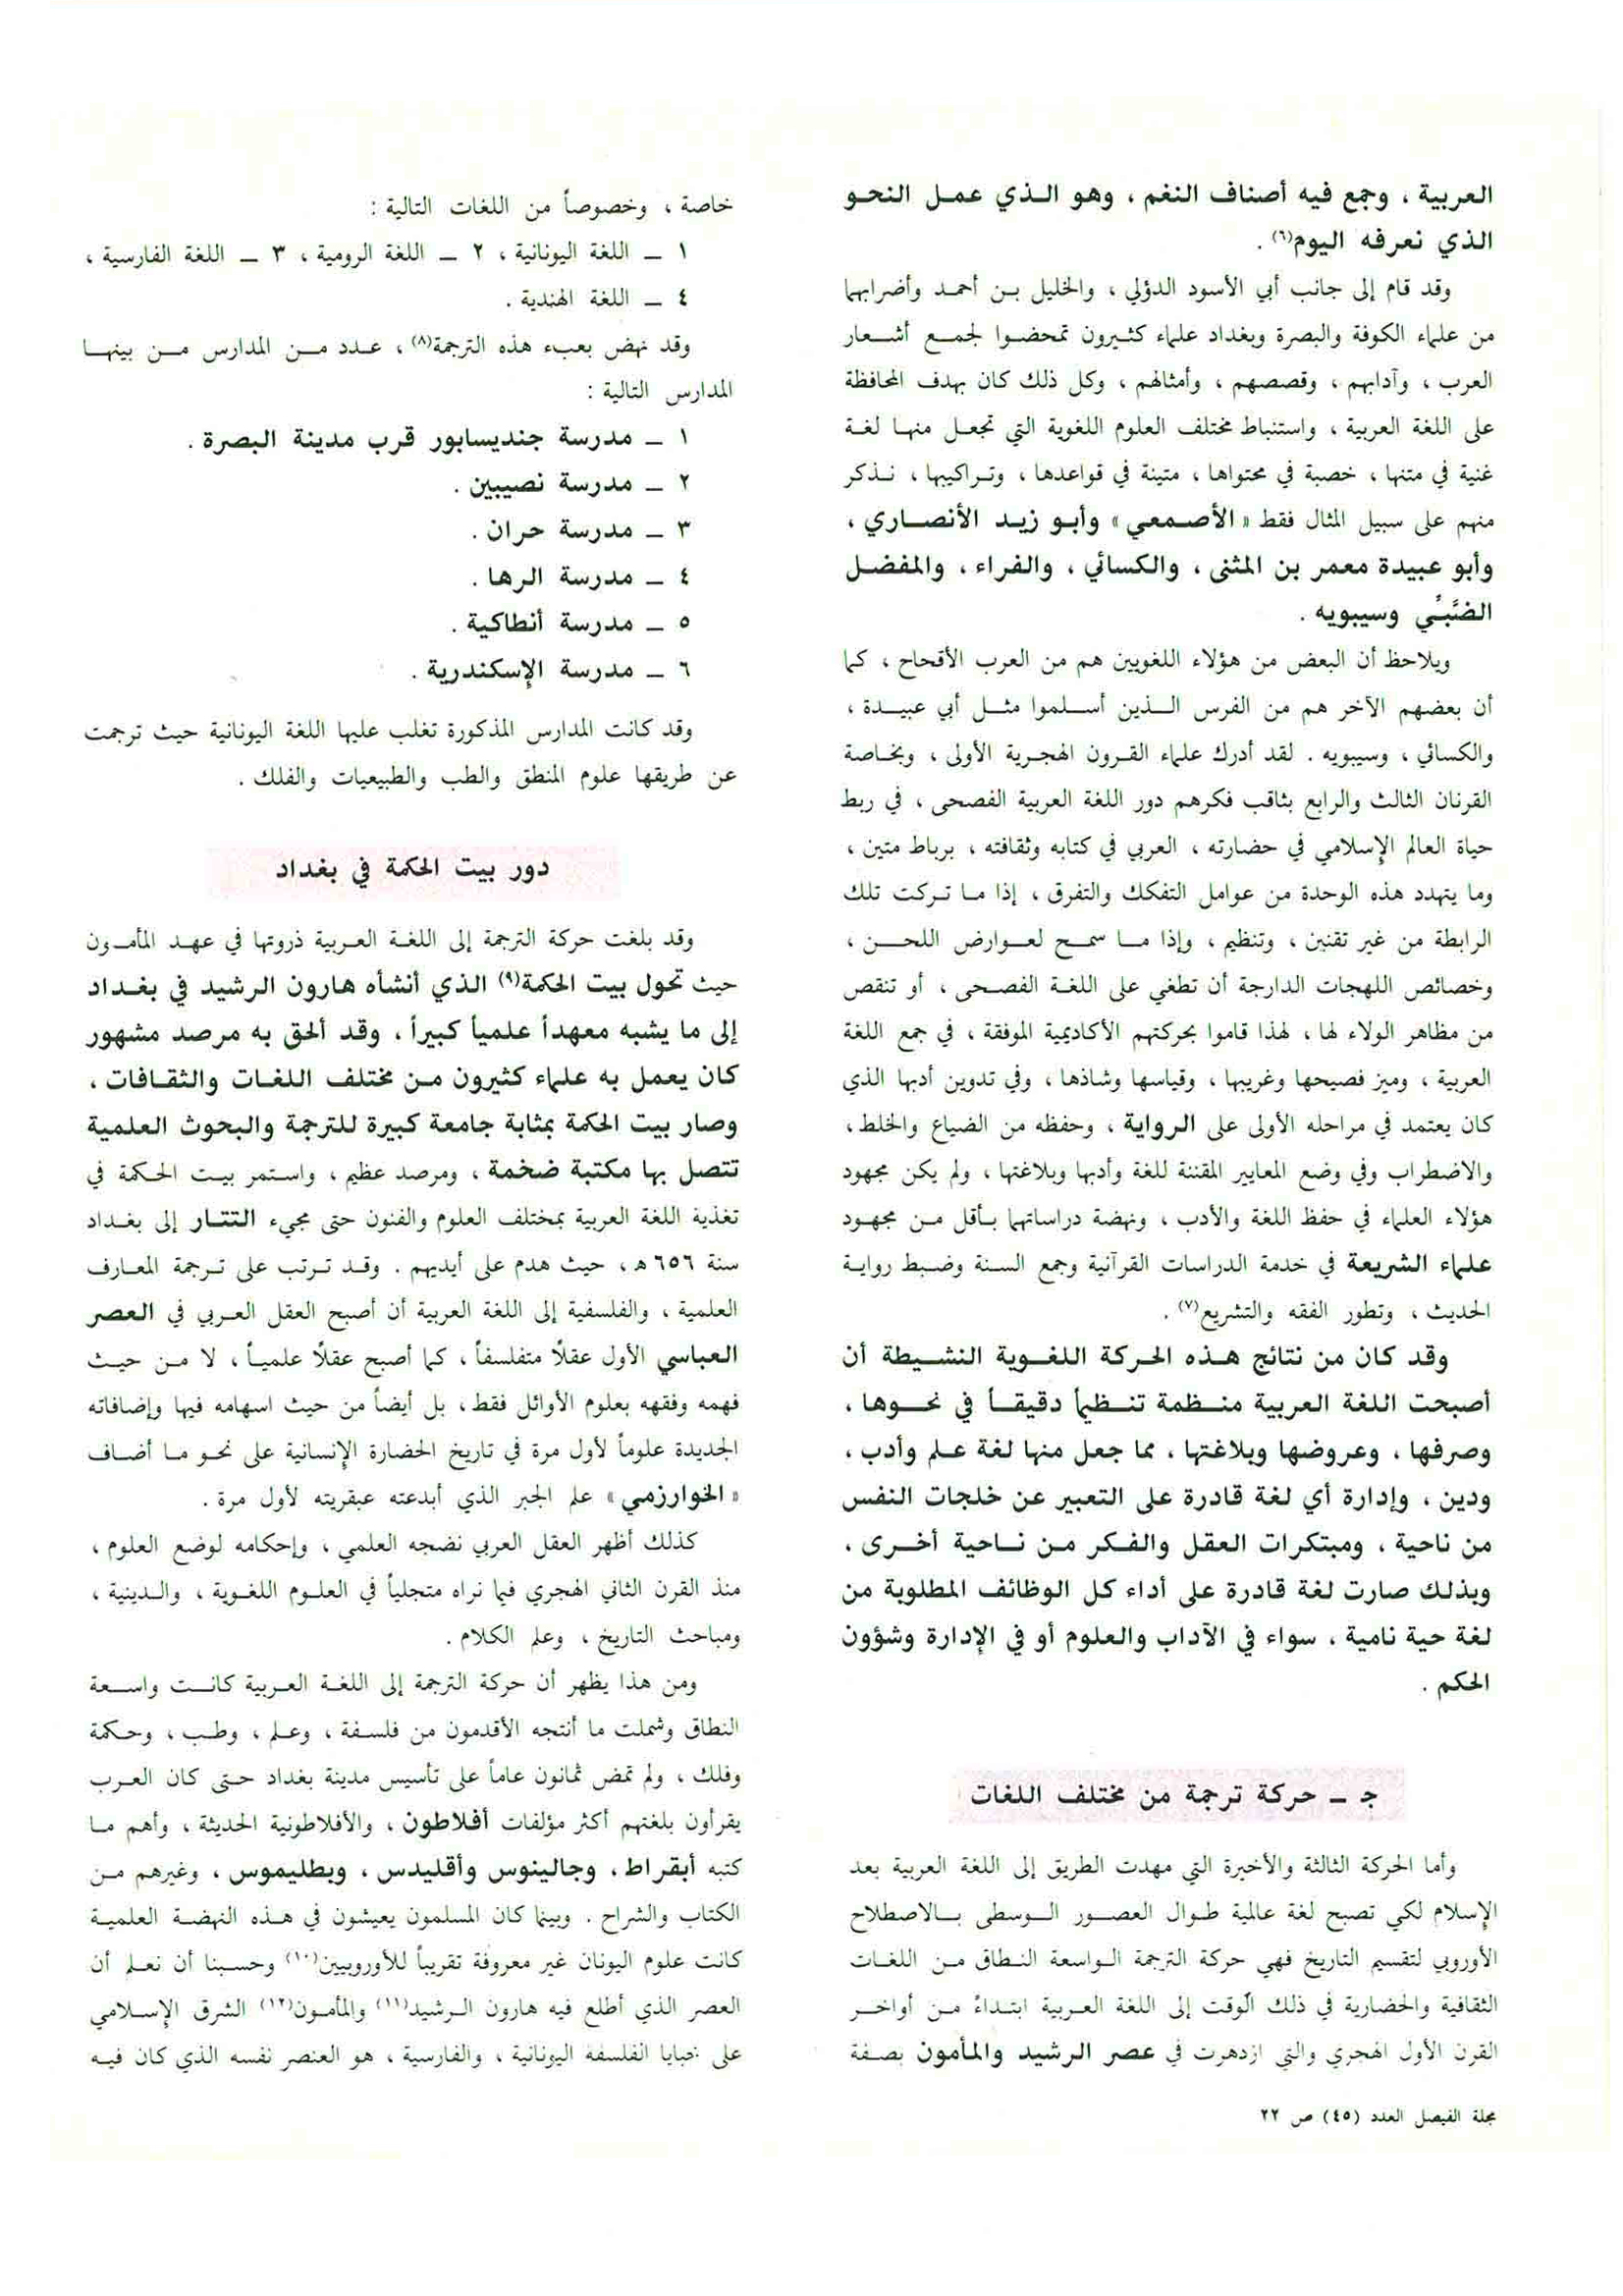 العربية ، وجمع فيه أصناف النغم ، وهو الـذي عمـل النحـو
الذي نعرفه اليوم(٦) .
وقد قام إلى جانب أبي الأسود الدؤلي ، والخليل بـن أحمـد وأضرابهما
من علماء الكوفة والبصرة وبغداد علماء كثـيرون تمحضـوا لجمـع أشـعار
العرب ، وآدابهم ، وقصصهم ، وأمثالهم ، وكل ذلك كان بهدف المحافظة
على اللغة العربية ، واستنباط مختلف العلوم اللغوية التي تجعـل منهـا لغـة
غنية في متنها ، خصبة في محتواها ، متينة في قواعدها ، وتـراكيبها ، نـذكر
منهم على سبيل المثال فقط « الأصـمعي » وأبـو زيـد الأنصـاري ،
وأبو عبيدة معمر بن المثنى ، والكسائي ، والفراء ، والمفضـل
الضَّبِّي وسيبويه .
ويلاحظ أن البعض من هؤلاء اللغويين هم من العرب الأقحاح ، كما
أن بعضهم الآخر هم من الفرس الـذين أسـلموا مثـل أبي عبيـدة ،
والكسائي ، وسيبويه . لقد أدرك علماء القـرون الهجـرية الأولى ، وبخـاصة
القرنان الثالث والرابع بثاقب فكرهم دور اللغة العربية الفصحى ، في ربط
حياة العالم الإسلامي في حضارته ، العربي في كتابه وثقافته ، برباط متين ،
وما يتهدد هذه الوحدة من عوامل التفكك والتفرق ، إذا مـا تـركت تلك
الرابطة من غير تقنين ، وتنظيم ، وإذا مـا سمـح لعـوارض اللحـن ،
وخصائص اللهجات الدارجة أن تطغي على اللغـة الفصـحى ، أو تنقص
من مظاهر الولاء لها ، لهذا قاموا بحركتهم الأكاديمية الموفقة ، في جمع اللغة
العربية ، وميز فصيحها وغريبها ، وقياسها وشاذها ، وفي تدوين أدبها الذي
كان يعتمد في مراحله الأولى على الرواية ، وحفظه من الضياع والخلط ،
والاضطراب وفي وضع المعايير المقننة للغة وأدبها وبلاغتها ، ولم يكن مجهود
هؤلاء العلماء في حفظ اللغة والأدب ، ونهضة دراساتهما بـأقل مـن مجهـود
علماء الشريعة في خدمة الدراسات القرآنية وجمع السنة وضـبط روايـة
الحديث ، وتطور الفقه والتشريع(٧) .
وقد كان من نتائج هـذه الحـركة اللغـوية النشـيطة أن
أصبحت اللغة العربية منـظمة تنـظيماً دقيقـاً في نحـوها ،
وصرفها ، وعروضها وبلاغتها ، مما جعل منها لغة عـلم وأدب ،
ودين ، وإدارة أي لغة قادرة على التعبير عن خلجات النفس
من ناحية ، ومبتكرات العقل والفـكر مـن نـاحية أخـرى ،
وبذلك صارت لغة قادرة على أداء كل الوظائف المطلوبة من
لغة حية نامية ، سواء في الآداب والعلوم أو في الإدارة وشؤون
الحكم .
جـ ـ حركة ترجمة من مختلف اللغات
وأما الحركة الثالثة والأخيرة التي مهدت الطريق إلى اللغة العربية بعد
الإسلام لكي تصبح لغة عالمية طـوال العصـور الـوسطى بـالاصطلاح
الأوروبي لتقسيم التاريخ فهي حركة الترجمة الـواسعة النـطاق مـن اللغـات
الثقافية والحضارية في ذلك الوقت إلى اللغة العربية ابتـداءً مـن أواخـر
القرن الأول الهجري والتي ازدهرت في عصر الرشيد والمأمون بصـفة
مجلة الفيصل العدد (٤٥) ص ٢٢
خاصة ، وخصوصاً من اللغات التالية :
١ ـ اللغة اليونانية ، ٢ ـ اللغة الرومية ، ٣ ـ اللغة الفارسية ،
٤ ـ اللغة الهندية .
وقد نهض بعبء هذه الترجمة(٨) ، عـدد مـن المدارس مـن بينهـا
المدارس التالية :
١ ـ مدرسة جنديسابور قرب مدينة البصرة .
٢ ـ مدرسة نصيبين .
٣ ـ مدرسة حران .
٤ ـ مدرسة الرها .
٥ ـ مدرسة أنطاكية .
٦ ـ مدرسة الإسكندرية .
وقد كانت المدارس المذكورة تغلب عليها اللغة اليونانية حيث ترجمت
عن طريقها علوم المنطق والطب والطبيعيات والفلك .
دور بيت الحكمة في بغداد
وقد بلغت حركة الترجمة إلى اللغـة العـربية ذروتها في عهـد المأمـون
حيث تحول بيت الحكمة(٩) الذي أنشأه هارون الرشيد في بغـداد
إلى ما يشبه معهداً علمياً كبيراً ، وقد ألحق به مرصد مشهور
كان يعمل به علماء كثيرون مـن مختلف اللغـات والثقـافات ،
وصار بيت الحكمة بمثابة جامعة كبيرة للترجمة والبحوث العلمية
تتصل بها مكتبة ضخمة ، ومرصد عظيم ، واسـتمر بيـت الحـكمة في
تغذية اللغة العربية بمختلف العلوم والفنون حتى مجيء التتـار إلى بغـداد
سنة ٦٥٦ هـ ، حيث هدم على أيديهم . وقـد تـرتب على تـرجمة المعـارف
العلمية ، والفلسفية إلى اللغة العربية أن أصبح العقل العـربي في العصر
العباسي الأول عقلًا متفلسفاً ، كما أصبح عقلًا علميـاً ، لا مـن حيـث
فهمه وفقهه بعلوم الأوائل فقط ، بل أيضاً من حيث اسهامه فيها وإضافاته
الجديدة علوماً لأول مرة في تاريخ الحضارة الإنسانية على نحـو مـا أضـاف
« الخوارزمي » علم الجبر الذي أبدعته عبقريته لأول مرة .
كذلك أظهر العقل العربي نضجه العلمي ، وإحكامه لوضع العلوم ،
منذ القرن الثاني الهجري فيما نراه متجلياً في العلـوم اللغـوية ، والـدينية ،
ومباحث التاريخ ، وعلم الكلام .
ومن هذا يظهر أن حركة الترجمة إلى اللغـة العـربية كانـت واسـعة
النطاق وشملت ما أنتجه الأقدمون من فلسـفة ، وعـلم ، وطـب ، وحـكمة
وفلك ، ولم تمض ثمانون عاماً على تأسيس مدينة بغداد حـتى كان العـرب
يقرأون بلغتهم أكثر مؤلفات أفلاطون ، والأفلاطونية الحديثة ، وأهم مـا
كتبه أبقراط ، وجالينوس وأقليدس ، وبطليموس ، وغيرهم مـن
الكتاب والشراح . وبينما كان المسلمون يعيشون في هـذه النهضـة العلميـة
كانت علوم اليونان غير معروفة تقريباً للأوروبيين(١٠) وحسـبنا أن نعـلم أن
العصر الذي أطلع فيه هارون الـرشيد(١١) والمأمـون(١٢) الشرق الإسـلامي
على خبايا الفلسفة اليونانية ، والفارسية ، هو العنصر نفسه الذي كان فيـه